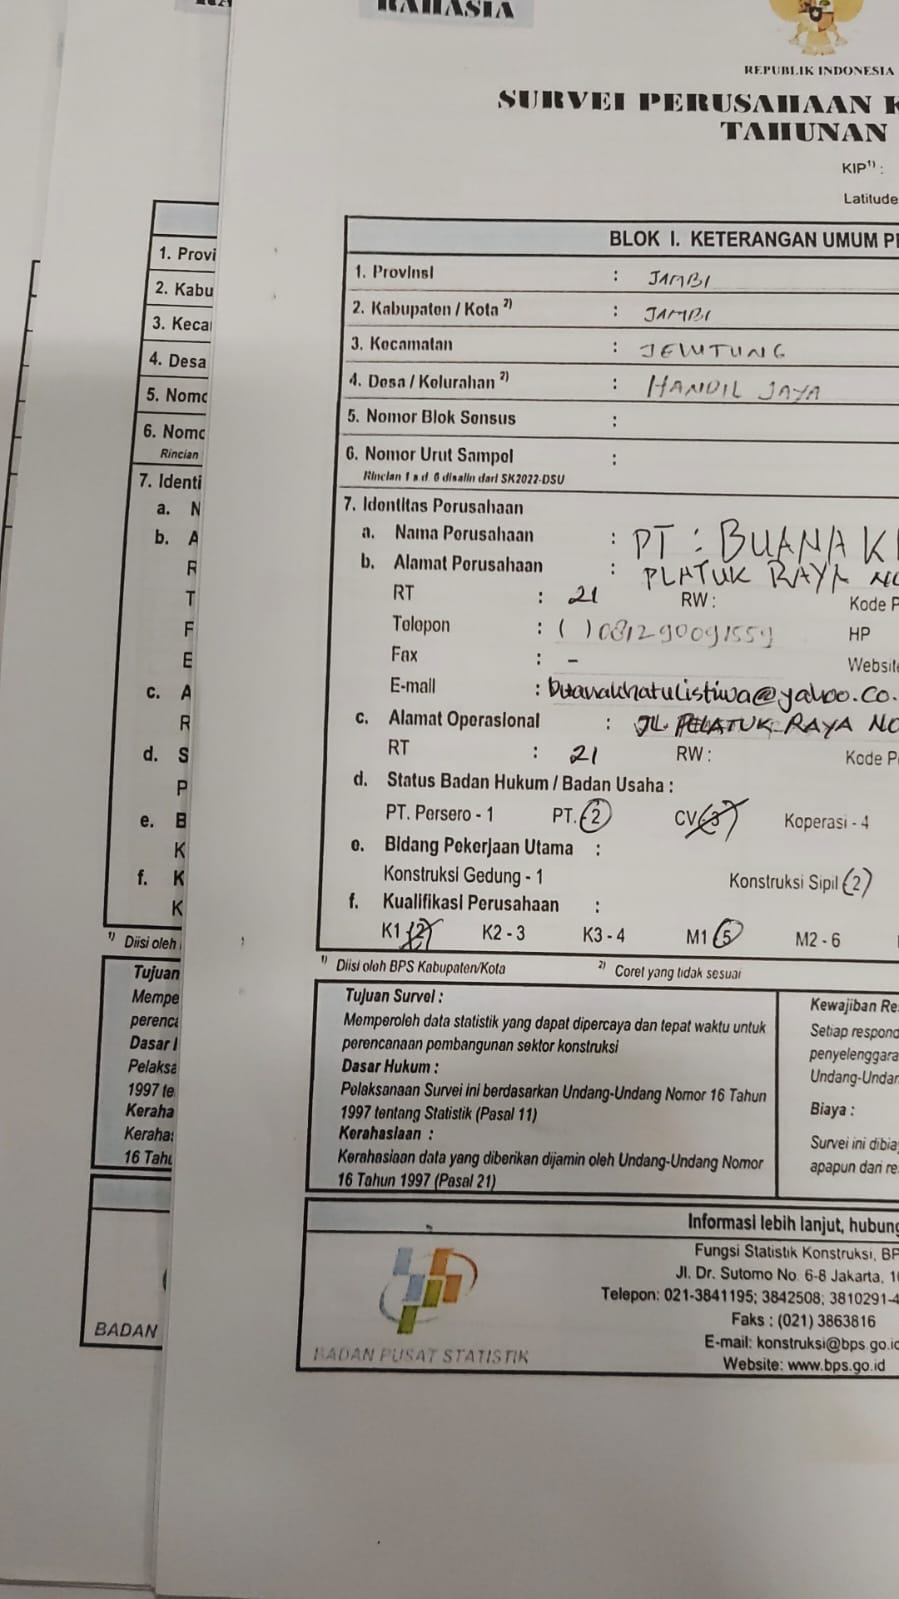 RAHASIA
REPUBLIK INDONESIA
SURVEI PERUSAHAAN K
TAHUNAN
KIP¹⁾ :
Latitude
BLOK I. KETERANGAN UMUM PE
1. Provinsi : JAMBI
2. Kabupaten / Kota ²⁾ : JAMBI
3. Kecamatan : JELUTUNG
4. Desa / Kelurahan ²⁾ : HANDIL JAYA
5. Nomor Blok Sensus :
6. Nomor Urut Sampel :
Rincian 1 s.d. 6 disalin dari SK2022-DSU
7. Identitas Perusahaan
a. Nama Perusahaan : PT : BUANA K
b. Alamat Perusahaan : PLATUK RAYA NO
RT : 21 RW : Kode P
Telepon : ( ) 081290091559 HP
Fax : - Website
E-mail : buanakhatulistiwa@yahoo.co.
c. Alamat Operasional : JL. PELATUK RAYA NO
RT : 21 RW : Kode P
d. Status Badan Hukum / Badan Usaha :
PT. Persero - 1 PT. - 2 CV - 3 Koperasi - 4
e. Bidang Pekerjaan Utama :
Konstruksi Gedung - 1 Konstruksi Sipil - 2
f. Kualifikasi Perusahaan :
K1 - 2 K2 - 3 K3 - 4 M1 - 5 M2 - 6
¹⁾ Diisi oleh BPS Kabupaten/Kota ²⁾ Coret yang tidak sesuai
Tujuan Survei :
Memperoleh data statistik yang dapat dipercaya dan tepat waktu untuk
perencanaan pembangunan sektor konstruksi
Dasar Hukum :
Pelaksanaan Survei ini berdasarkan Undang-Undang Nomor 16 Tahun
1997 tentang Statistik (Pasal 11)
Kerahasiaan :
Kerahasiaan data yang diberikan dijamin oleh Undang-Undang Nomor
16 Tahun 1997 (Pasal 21)
Kewajiban Re
Setiap respond
penyelenggara
Undang-Undan
Biaya :
Survei ini dibia
apapun dari re
Informasi lebih lanjut, hubung
Fungsi Statistik Konstruksi, BP
Jl. Dr. Sutomo No. 6-8 Jakarta, 1
Telepon: 021-3841195; 3842508; 3810291-4
Faks : (021) 3863816
E-mail: konstruksi@bps.go.id
Website: www.bps.go.id
BADAN PUSAT STATISTIK
1. Provi
2. Kabu
3. Keca
4. Desa
5. Nomo
6. Nomo
Rincian
7. Identi
a. N
b. A
R
T
F
E
c. A
R
d. S
P
e. B
K
f. K
K
¹⁾ Diisi oleh
Tujuan
Mempe
perenca
Dasar
Pelaksa
1997 te
Keraha
Kerahas
16 Tahu
BADAN